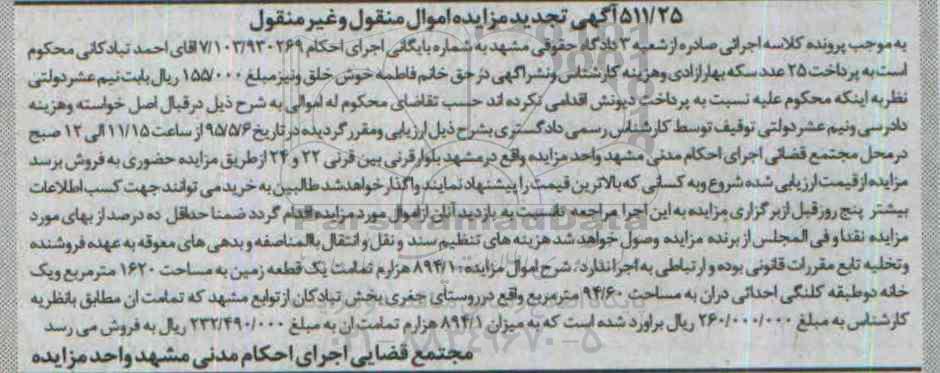 ۵۱۱/۲۵ آگهی تجدید مزایده اموال منقول و غیر منقول
به موجب پرونده کلاسه اجرائی صادره از شعبه ۳ دادگاه حقوقی مشهد به شماره بایگانی اجرای احکام ۷/۱۰۳/۹۳۰۲۶۹ اقای احمد تبادکانی محکوم
است به پرداخت ۲۵ عدد سکه بهار ازادی و هزینه کارشناس و نشر اگهی در حق خانم فاطمه خوش خلق و نیز مبلغ ۱۵۵/۰۰۰ ریال بابت نیم عشر دولتی
نظر به اینکه محکوم علیه نسبت به پرداخت دیونش اقدامی نکرده اند حسب تقاضای محکوم له اموالی به شرح ذیل در قبال اصل خواسته و هزینه
دادرسی و نیم عشر دولتی توقیف توسط کارشناس رسمی دادگستری بشرح ذیل ارزیابی و مقرر گردیده در تاریخ ۹۵/۵/۶ از ساعت ۱۱/۱۵ الی ۱۲ صبح
در محل مجتمع قضائی اجرای احکام مدنی مشهد واحد مزایده واقع در مشهد بلوار قرنی بین قرنی ۲۲ و ۲۴ از طریق مزایده حضوری به فروش برسد
مزایده از قیمت ارزیابی شده شروع و به کسانی که بالاترین قیمت را پیشنهاد نمایند واگذار خواهد شد طالبین به خرید می توانند جهت کسب اطلاعات
بیشتر پنج روز قبل از برگزاری مزایده به این اجرا مراجعه تا نسبت به بازدید آنان از اموال مورد مزایده اقدام گردد ضمنا حداقل ده درصد از بهای مورد
مزایده نقدا و فی المجلس از برنده مزایده وصول خواهد شد هزینه های تنظیم سند و نقل و انتقال باالمناصفه و بدهی های معوقه به عهده فروشنده
و تخلیه تابع مقررات قانونی بوده و ارتباطی به اجرا ندارد. شرح اموال مزایده: ۸۹۴/۱ هزارم تمامت یک قطعه زمین به مساحت ۱۶۲۰ مترمربع و یک
خانه دو طبقه کلنگی احداثی در ان به مساحت ۹۴/۶۰ مترمربع واقع در روستای جغری بخش تبادکان از توابع مشهد که تمامت ان مطابق با نظریه
کارشناس به مبلغ ۲۶۰/۰۰۰/۰۰۰ ریال براورد شده است که به میزان ۸۹۴/۱ هزارم تمامت ان به مبلغ ۲۳۲/۴۹۰/۰۰۰ ریال به فروش می رسد
مجتمع قضایی اجرای احکام مدنی مشهد واحد مزایده
ParsNamadData